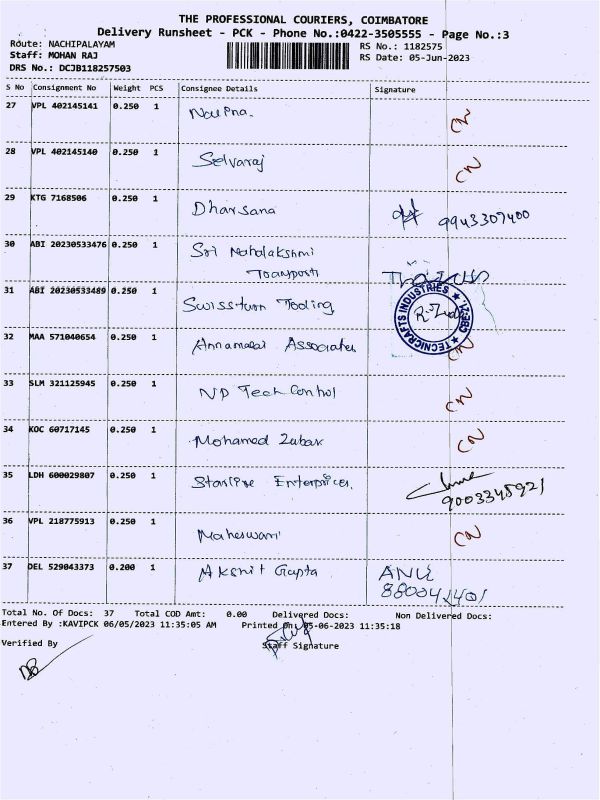 THE PROFESSIONAL COURIERS, COIMBATORE
Delivery Runsheet - PCK - Phone No.:0422-3505555 - Page No.:3
Route: NACHIPALAYAM
RS No.: 1182575
Staff: MOHAN RAJ
RS Date: 05-Jun-2023
DRS No.: DCJB118257503
S No Consignment No Weight PCS Consignee Details Signature
27 VPL 402145141 0.250 1 CN
28 VPL 402145140 0.250 1 Selvaraj CN
29 KTG 7168506 0.250 1 Dharsana 9943309400
30 ABI 20230533476 0.250 1 Sri Mahalakshmi
31 ABI 20230533489 0.250 1 Swissturn Tooling
TECNICRAFTS INDUSTRIES
32 MAA 571040654 0.250 1 Annamalai Associates CN
33 SLM 321125945 0.250 1 ND Tech Control CN
34 KOC 60717145 0.250 1 Mohamed Zubar CN
35 LDH 600029807 0.250 1 Starline Enterprices.
36 VPL 218775913 0.250 1 Maheswari CN
37 DEL 529043373 0.200 1 Akshit Gupta
Total No. Of Docs: 37 Total COD Amt: 0.00 Delivered Docs: Non Delivered Docs:
Entered By :KAVIPCK 06/05/2023 11:35:05 AM Printed On: 05-06-2023 11:35:18
Verified By Staff Signature